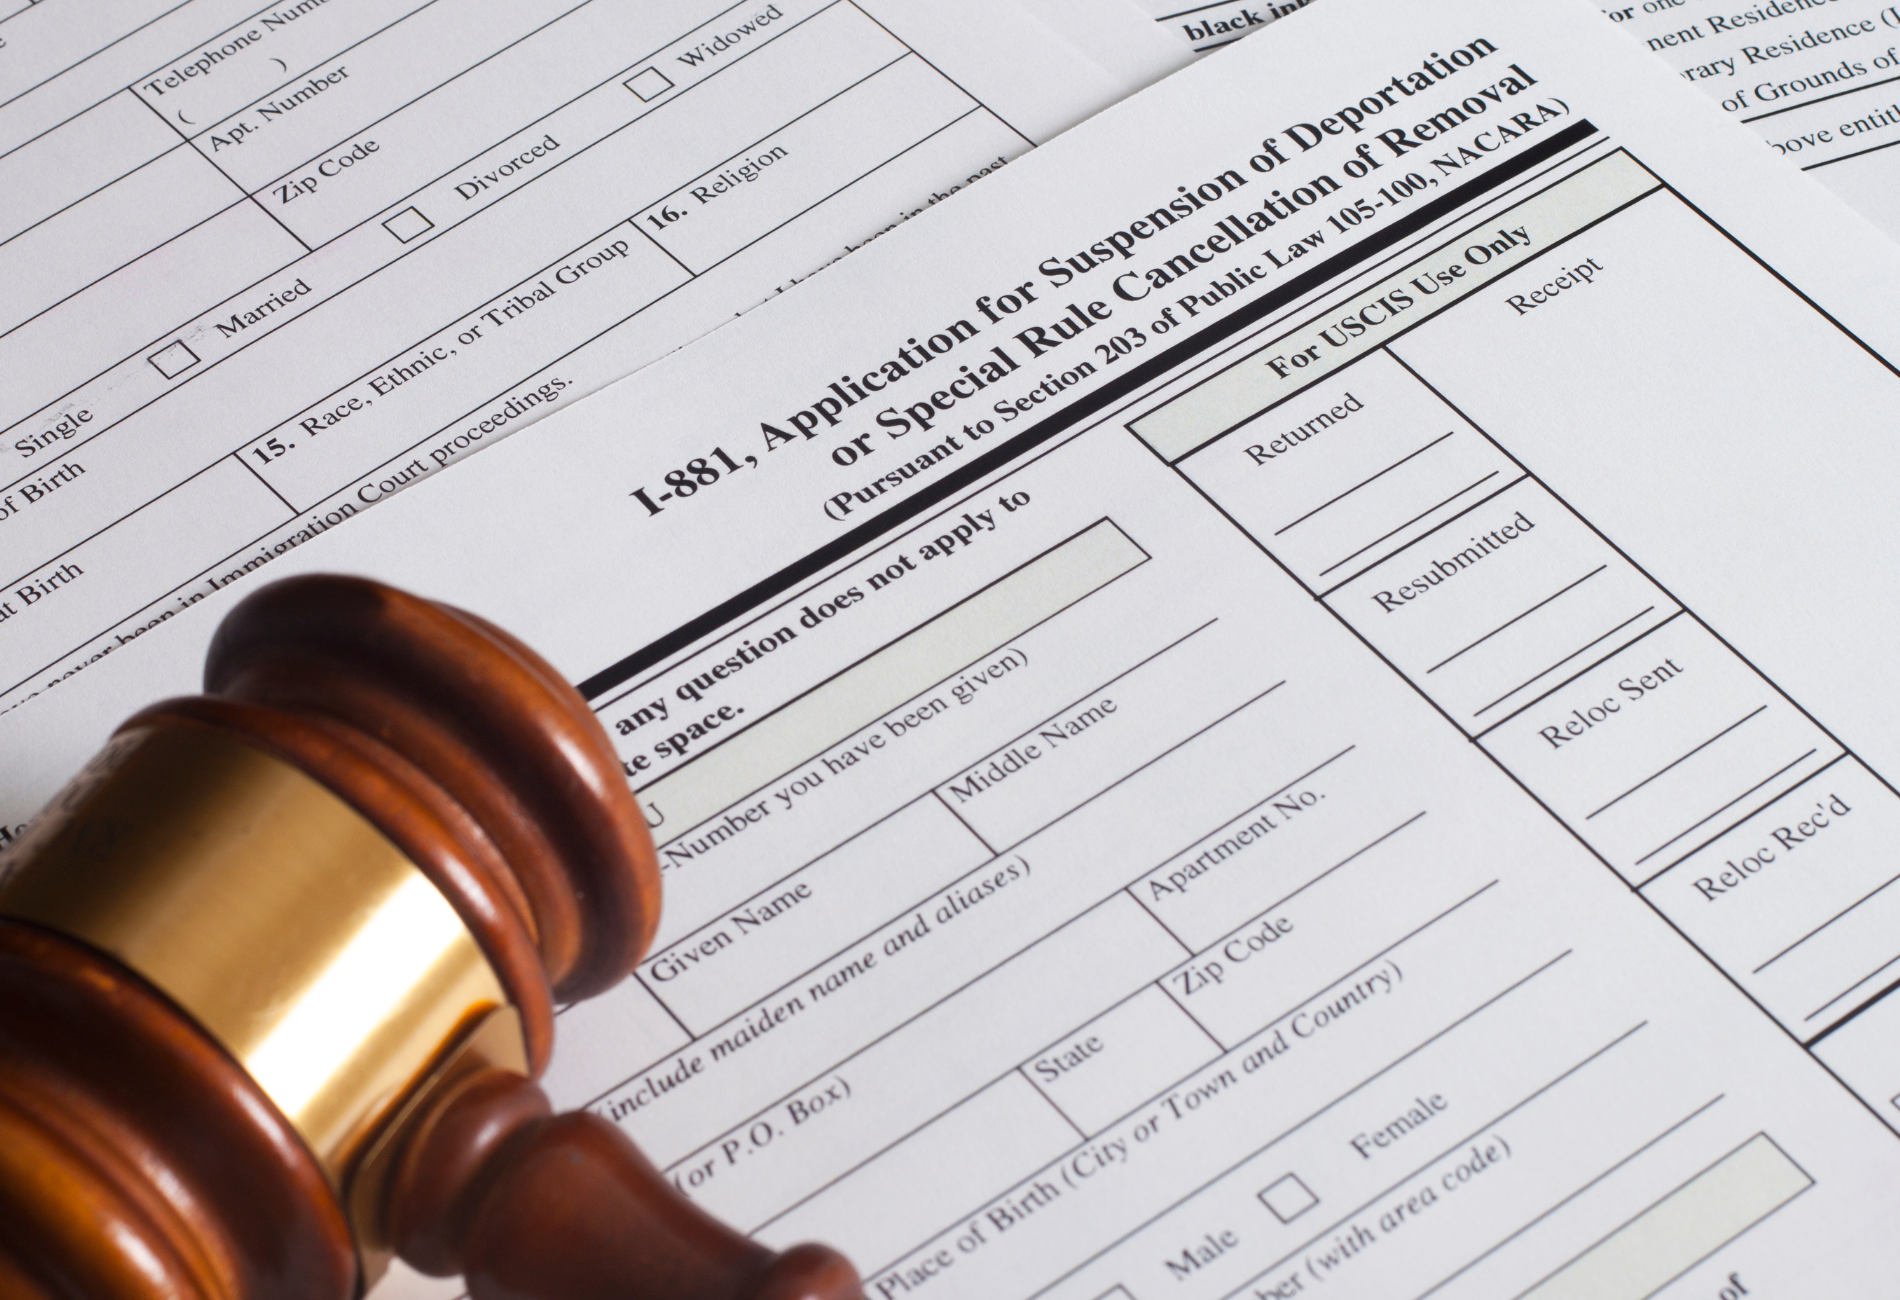 Telephone Num
( )
Apt. Number
Zip Code
Single
Married
Divorced
Widowed
of Birth
15. Race, Ethnic, or Tribal Group
16. Religion
at Birth
never been in Immigration Court proceedings.
been in the past
black ink
for one
nent Residence
rary Residence (I
of Grounds of
bove entitl
I-881, Application for Suspension of Deportation
or Special Rule Cancellation of Removal
(Pursuant to Section 203 of Public Law 105-100, NACARA)
any question does not apply to
te space.
U
-Number you have been given)
Given Name
Middle Name
(include maiden name and aliases)
(or P.O. Box)
Apartment No.
State
Zip Code
Place of Birth (City or Town and Country)
Male
Female
ber (with area code)
of
For USCIS Use Only
Returned
Receipt
Resubmitted
Reloc Sent
Reloc Rec'd